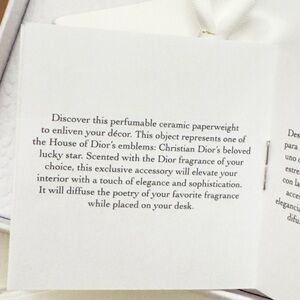 Discover this perfumable ceramic paperweight
to enliven your décor. This object represents one of
the House of Dior's emblems: Christian Dior's beloved
lucky star. Scented with the Dior fragrance of your
choice, this exclusive accessory will elevate your
interior with a touch of elegance and sophistication.
It will diffuse the poetry of your favorite fragrance
while placed on your desk.
Des
para
uno
estre
con la
acces
elegancia
difu